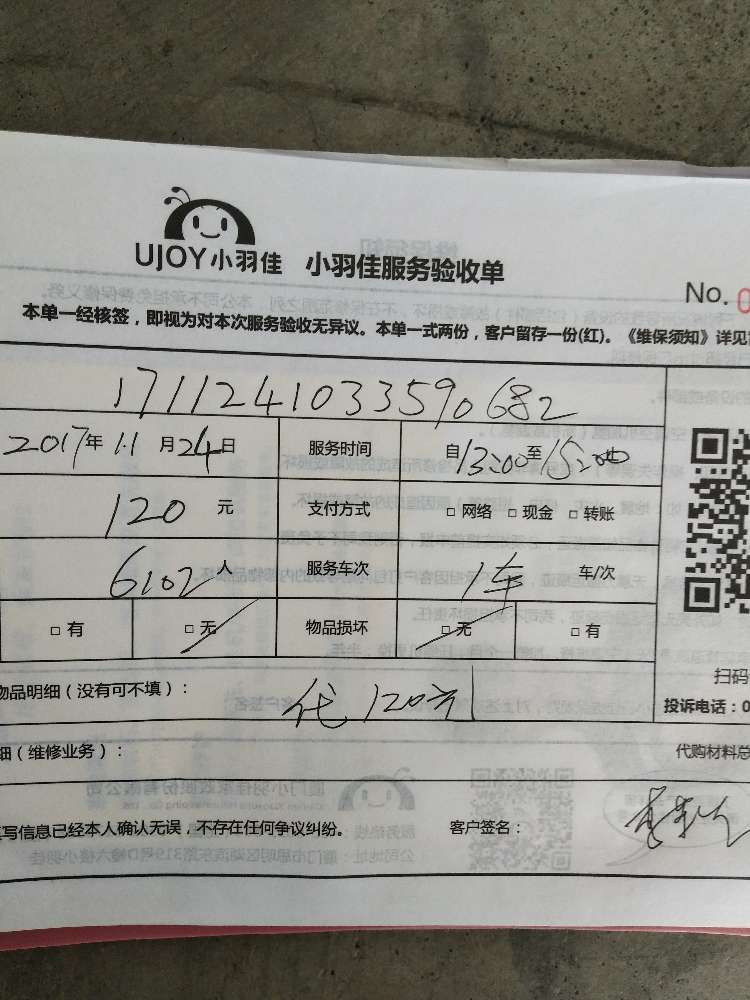 UJOY小羽佳 小羽佳服务验收单
No. 0
本单一经核签，即视为对本次服务验收无异议。本单一式两份，客户留存一份(红)。《维保须知》详见
1711241033590682
2017年11月24日 服务时间 自13:00至15:00
120元 支付方式 □ 网络 □ 现金 □ 转账
人 服务车次 1车 车/次
□ 有 □ 无 物品损坏 □ 无 □ 有
扫码
物品明细（没有可不填）： 代120元
投诉电话：0
细（维修业务）： 代购材料总
写信息已经本人确认无误，不存在任何争议纠纷。 客户签名：